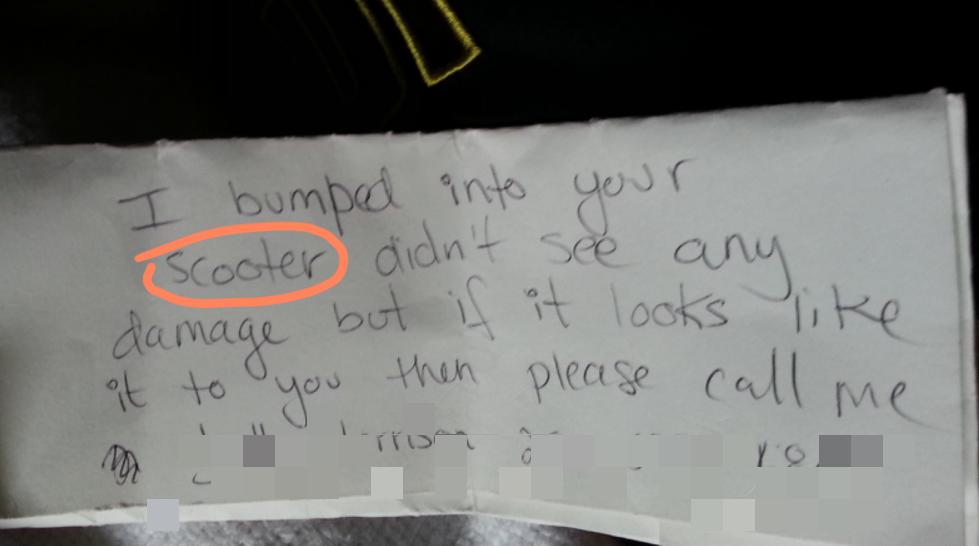 I bumped into your
scooter didn't see any
damage but if it looks like
it to you then please call me